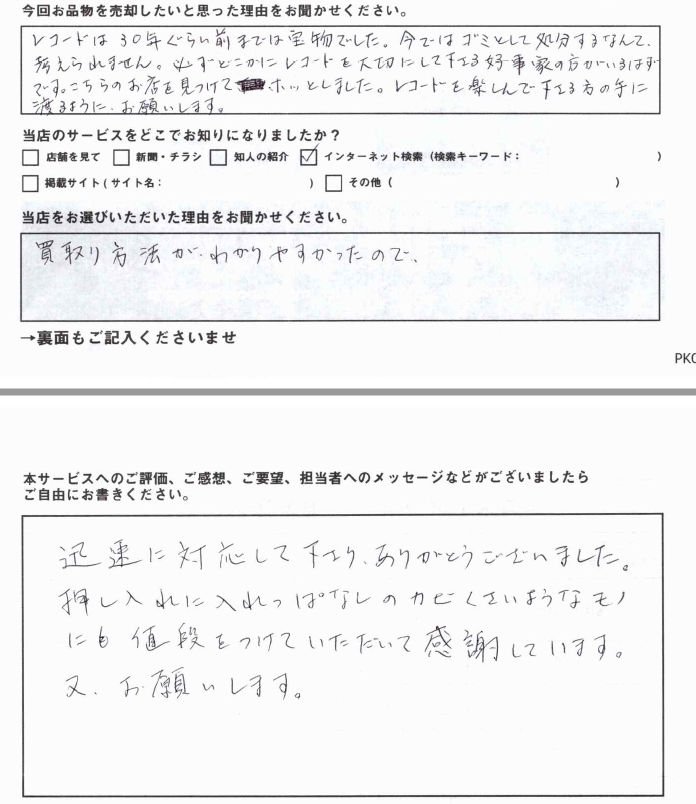 今回お品物を売却したいと思った理由をお聞かせください。
レコードは30年ぐらい前までは宝物でした。今ではゴミとして処分するなんて、
考えられません。必ずどこかにレコードを大切にして下さる好事家の方がいるはず
です。こちらのお店を見つけてホッとしました。レコードを楽しんで下さる方の手に
渡るように、お願いします。
当店のサービスをどこでお知りになりましたか？
店舗を見て 新聞・チラシ 知人の紹介 インターネット検索（検索キーワード： ）
掲載サイト（サイト名： ） その他（ ）
当店をお選びいただいた理由をお聞かせください。
買取り方法が、わかりやすかったので、
→裏面もご記入くださいませ
PKC
本サービスへのご評価、ご感想、ご要望、担当者へのメッセージなどがございましたら
ご自由にお書きください。
迅速に対応して下さり、ありがとうございました。
押し入れに入れっぱなしのカビくさいようなモノ
にも値段をつけていただいて感謝しています。
又、お願いします。